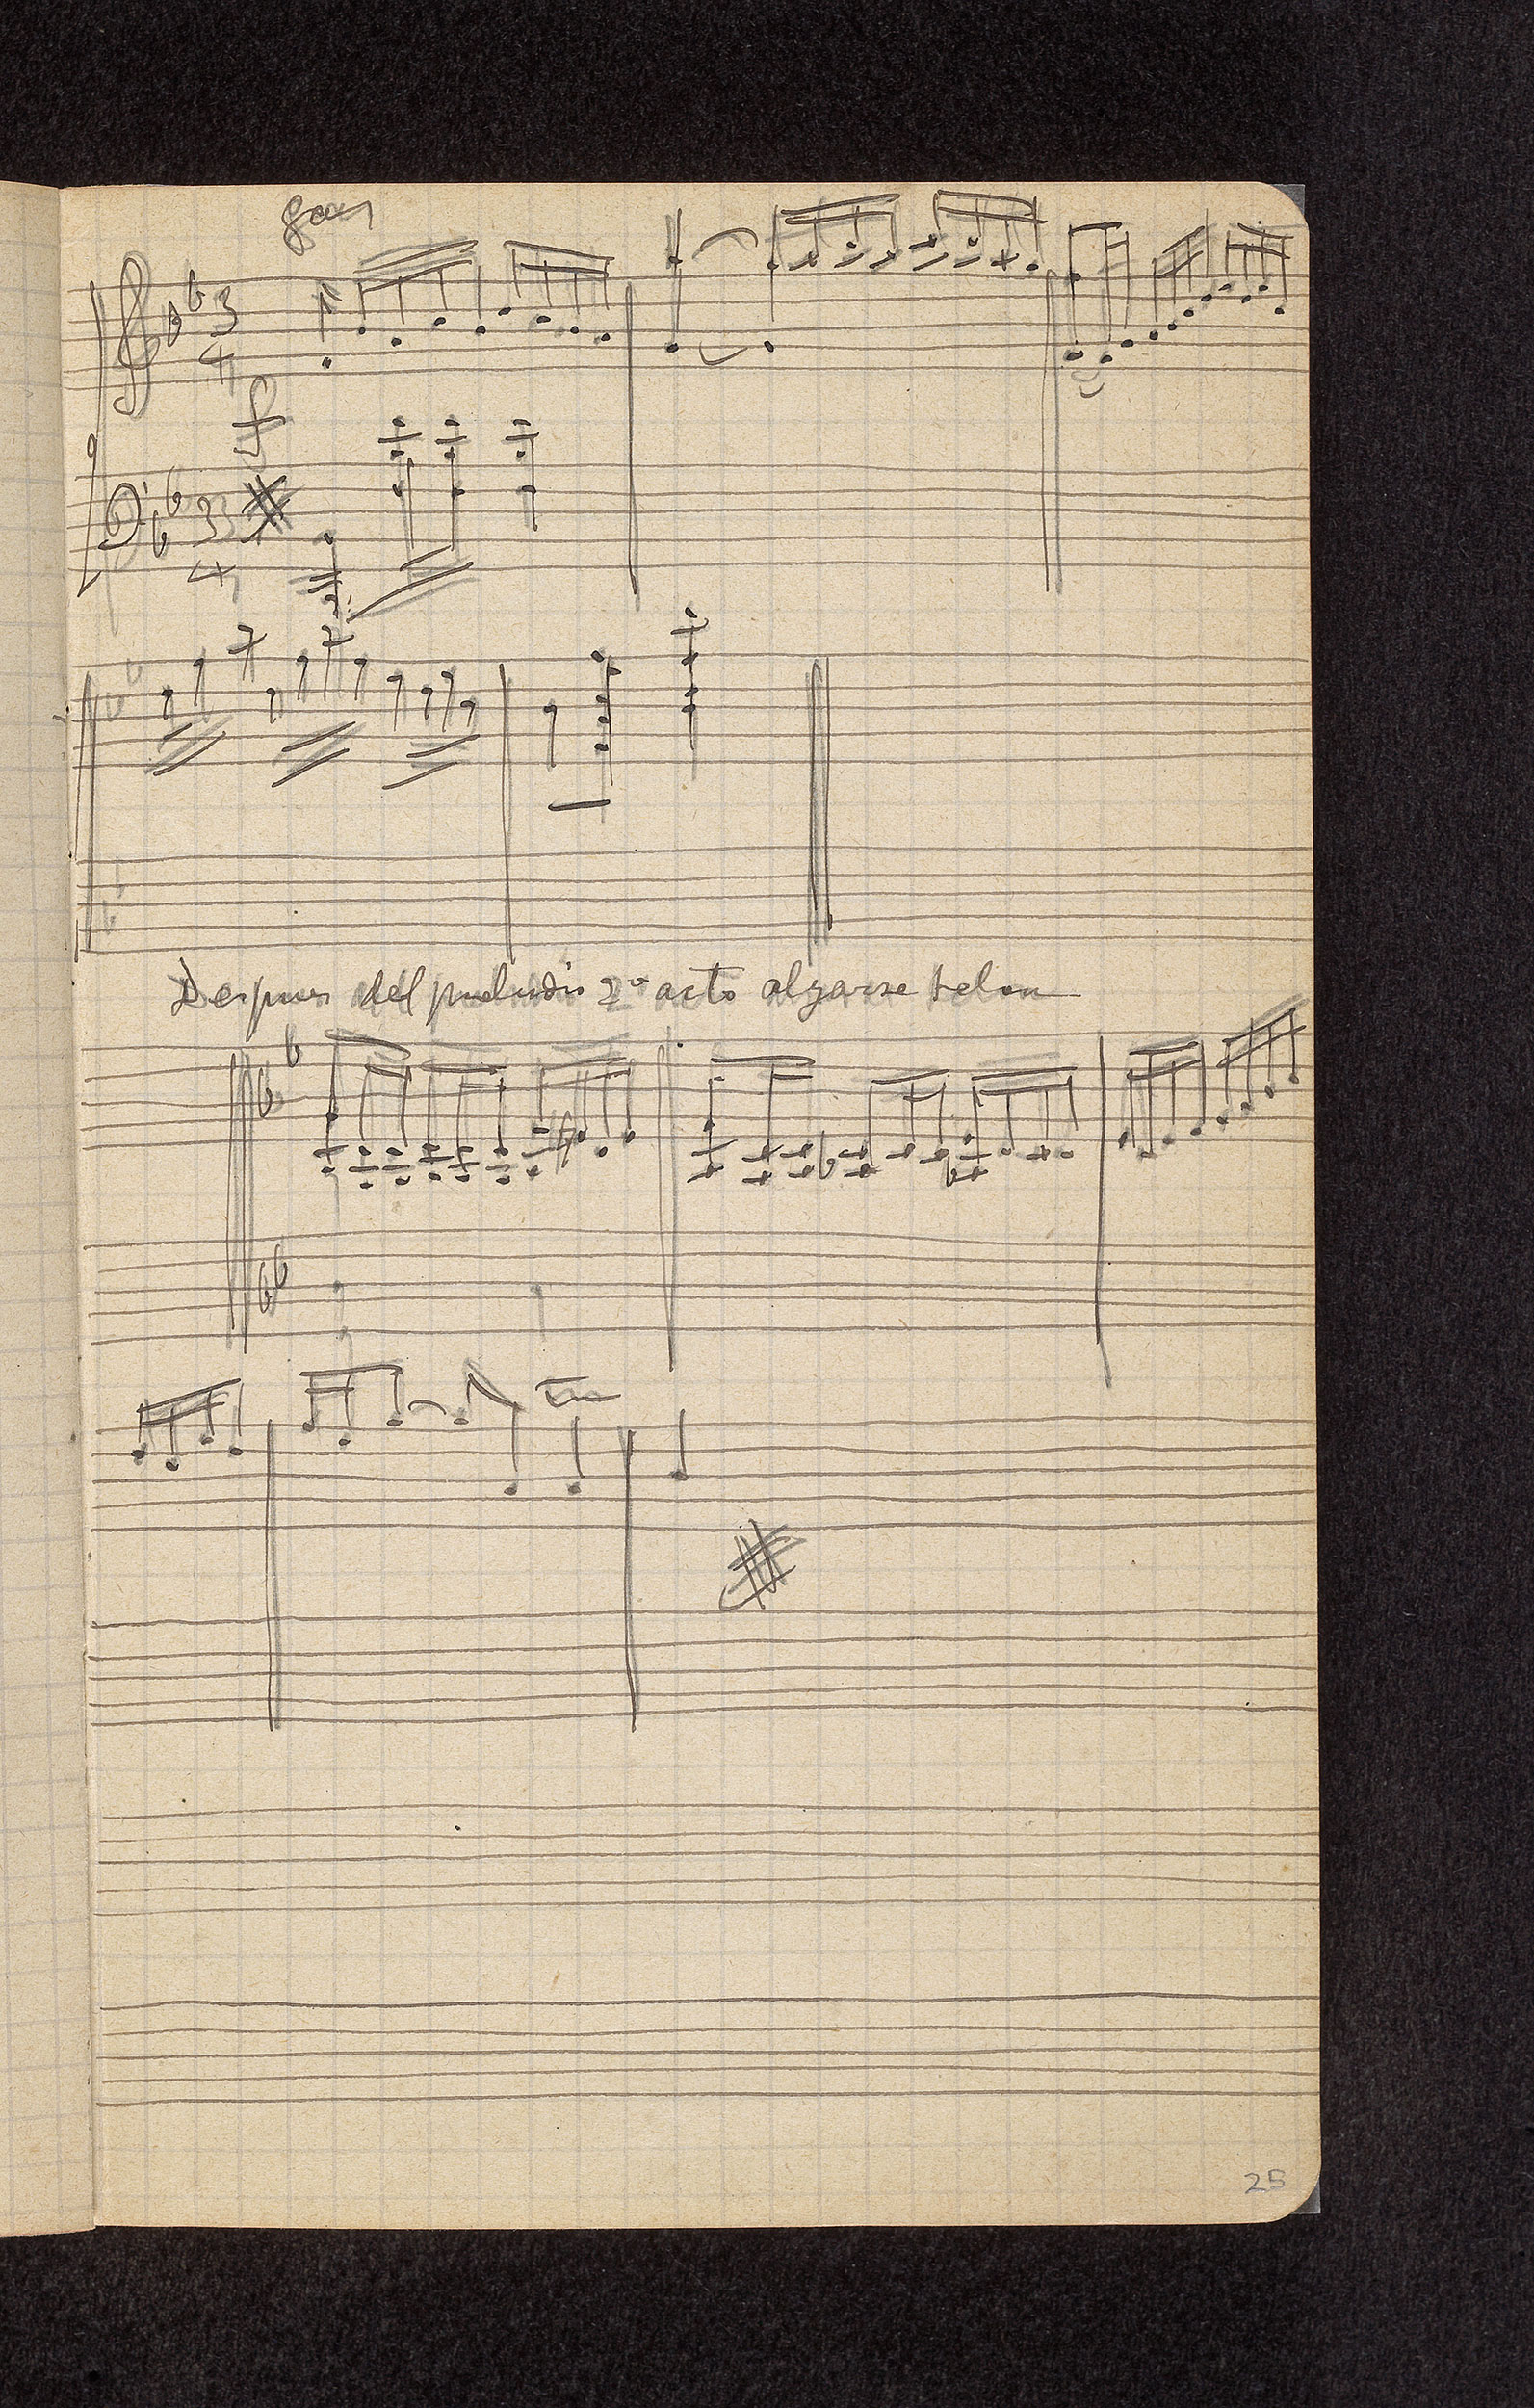 3
4
f
3
4
Despues del preludio 2º acto alzarse telon
tr
25